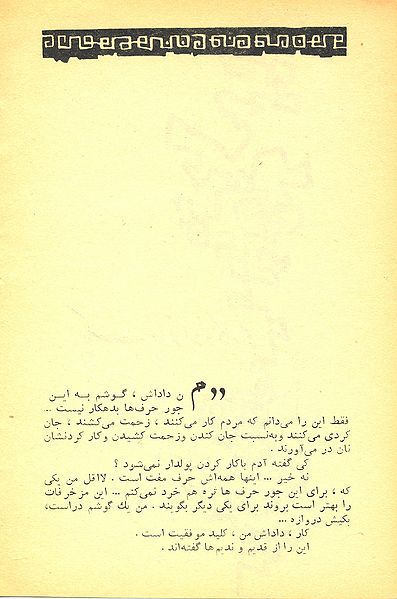 «من داداش ، گوشم به این
جور حرف‌ها بدهکار نیست ..
فقط این را می‌دانم که مردم کار می‌کنند ، زحمت می‌کشند ، جان
کردی می‌کنند وبه‌نسبت جان کندن وزحمت کشیدن وکار کردنشان
نان در می‌آورند .
کی گفته آدم باکار کردن پولدار نمی‌شود ؟
نه خیر ... اینها همه‌اش حرف مفت است . لااقل من یکی
که ، برای این جور حرف ها تره هم خرد نمی‌کنم ... این مزخرفات
را بهتر است بروند برای یکی دیگر بگویند . من یك گوشم دراست،
یکیش دروازه ...
کار ، داداش من ، کلید موفقیت است .
این را از قدیم و ندیم‌ها گفته‌اند .